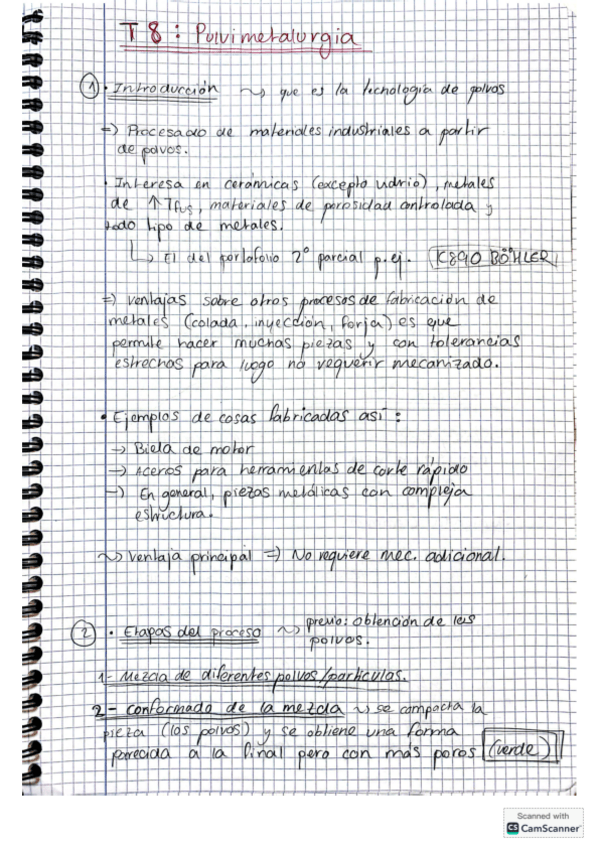 T 8 : Pulvimetalurgia
① · Introducción ~> que es la tecnología de polvos
=> Procesado de materiales industriales a partir
de polvos.
· Interesa en cerámicas (excepto vidrio), metales
de ↑ Tfus, materiales de porosidad controlada y
todo tipo de metales.
↳ El del portofolio 2º parcial p.ej. K890 BÖHLER
=> ventajas sobre otros procesos de fabricación de
metales (colada, inyección, forja) es que
permite hacer muchas piezas y con tolerancias
estrechos para luego no requerir mecanizado.
· Ejemplos de cosas fabricadas así :
-> Biela de motor
-> Aceros para herramientas de corte rápido
-> En general, piezas metálicas con compleja
estructura.
~> Ventaja principal => No requiere mec. adicional.
② · Etapas del proceso ~> previo: obtención de los
polvos.
1- Mezcla de diferentes polvos/partículas.
2- Conformado de la mezcla ~> se compacta la
pieza (los polvos) y se obtiene una forma
parecida a la final pero con más poros (verde)
Scanned with
CS CamScanner